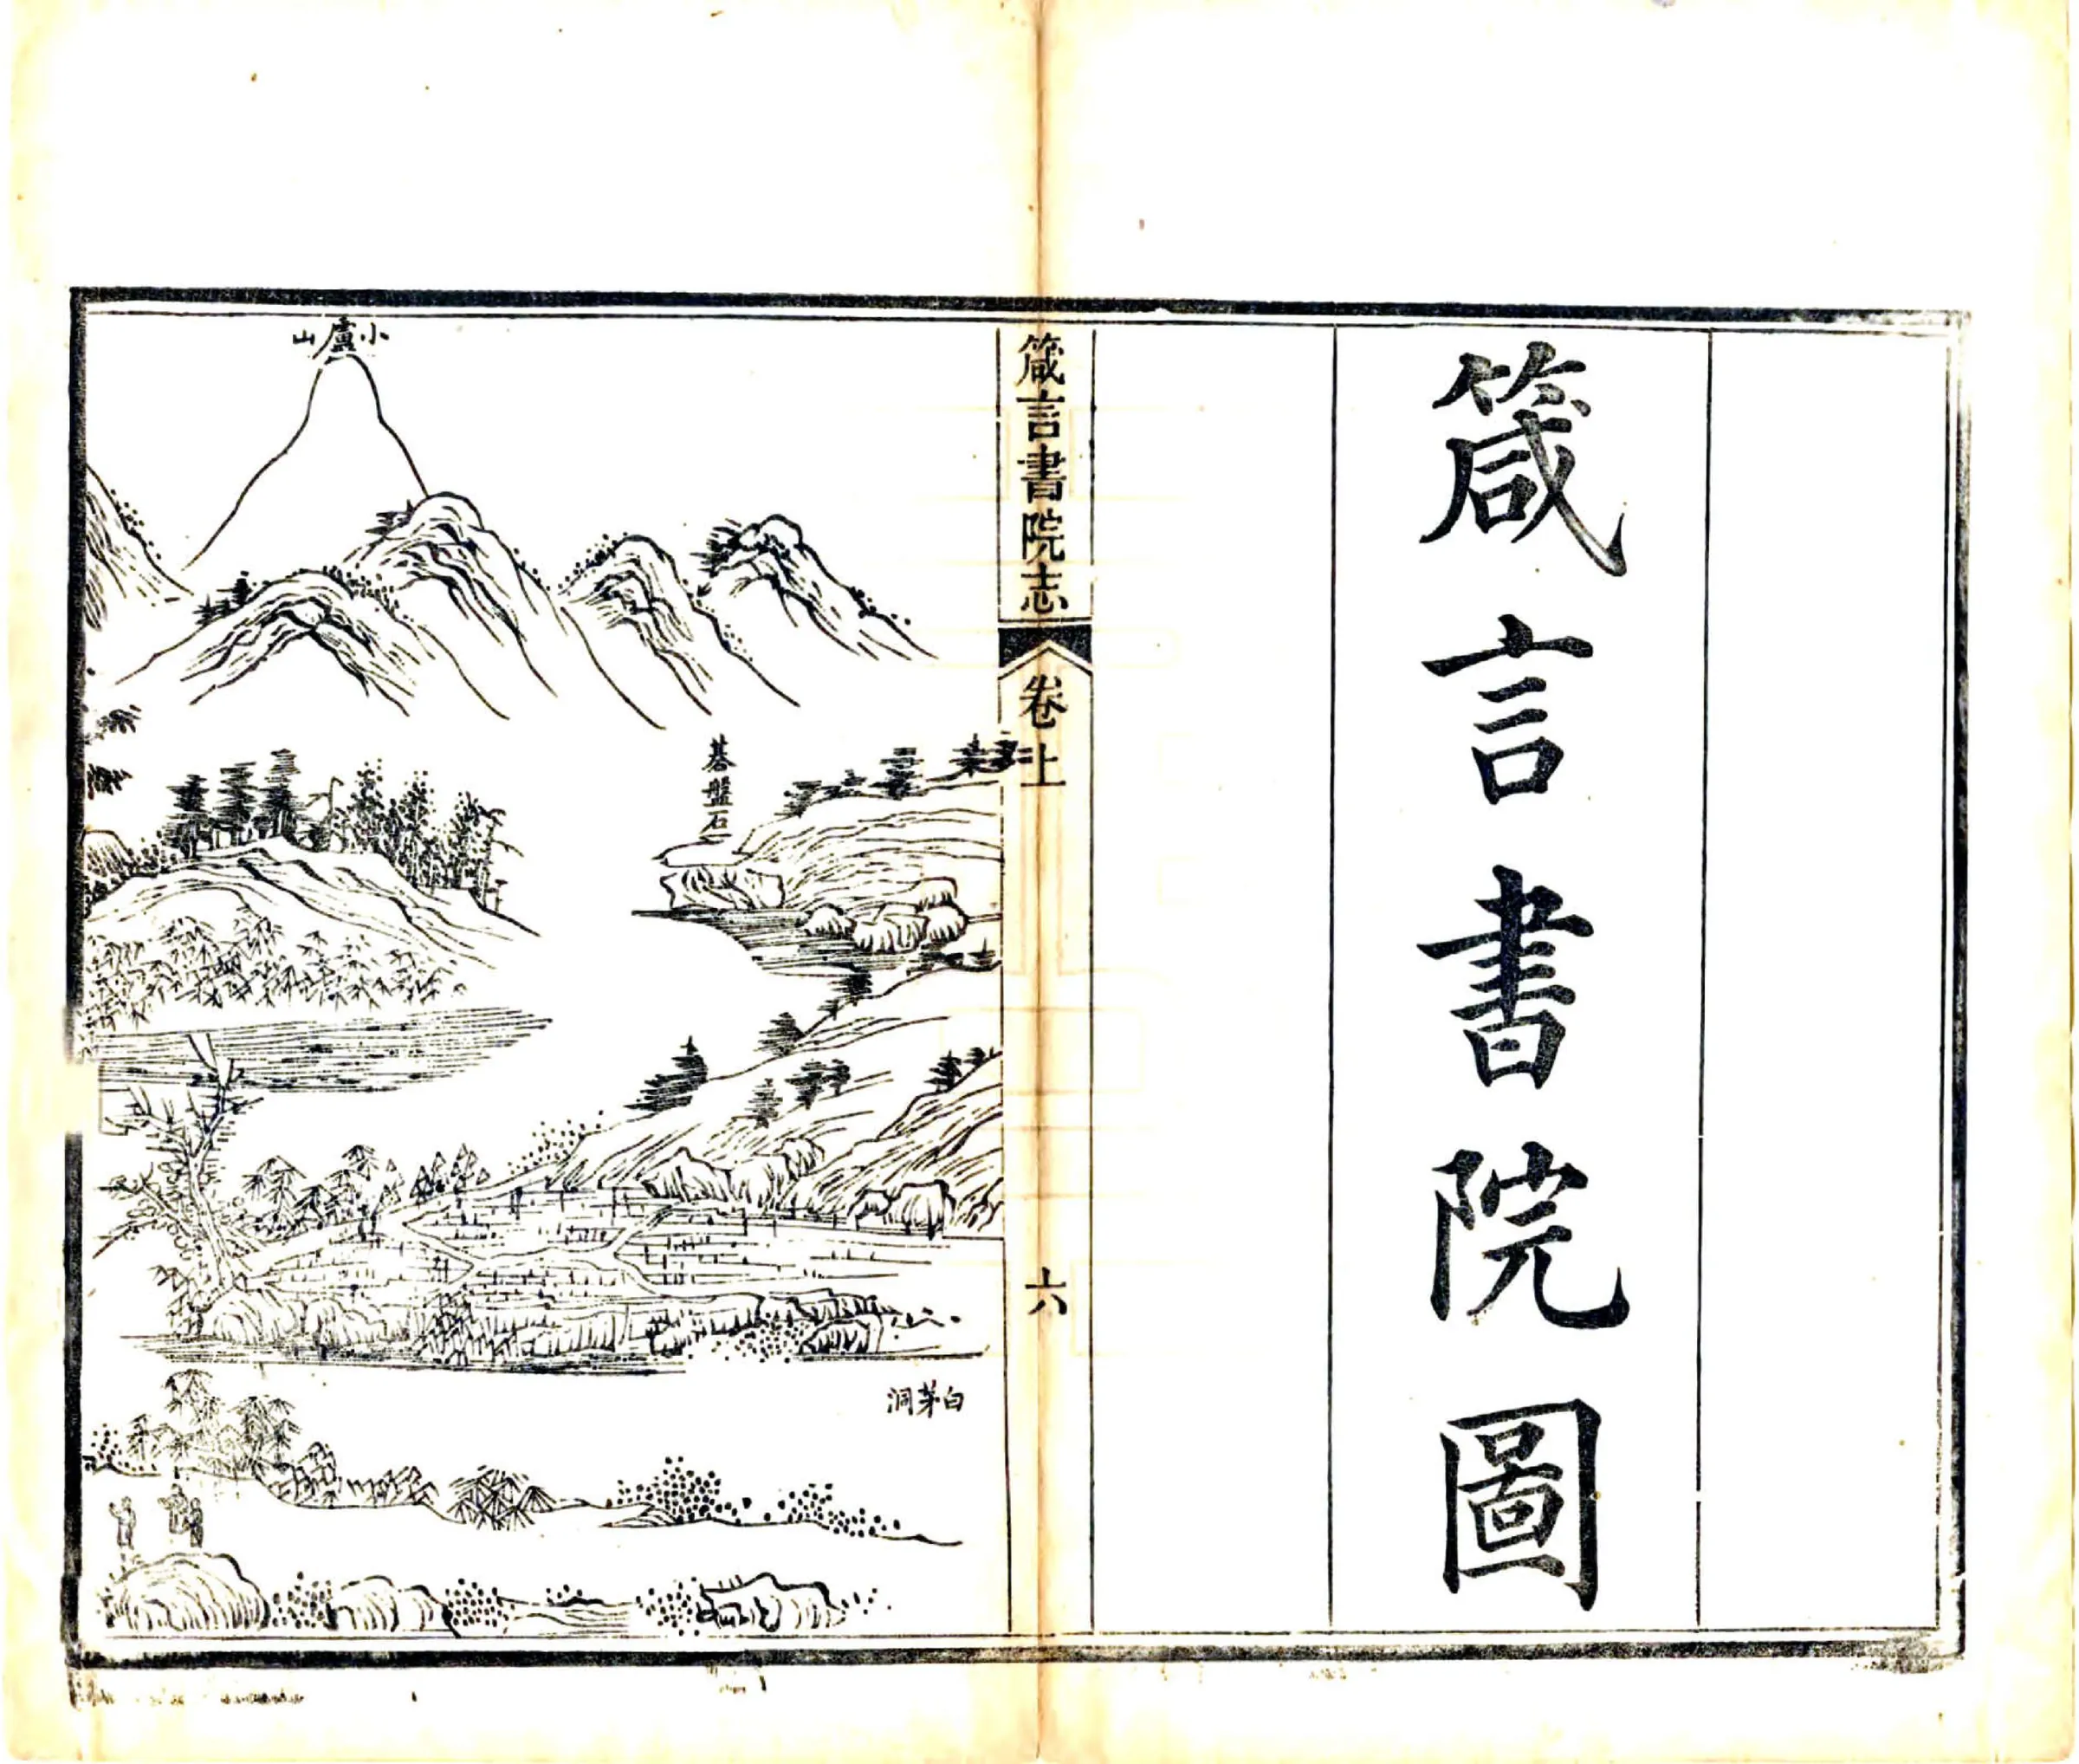 箴言書院圖
箴言書院志
卷上
六
小廬山
碁盤石
白茅洞